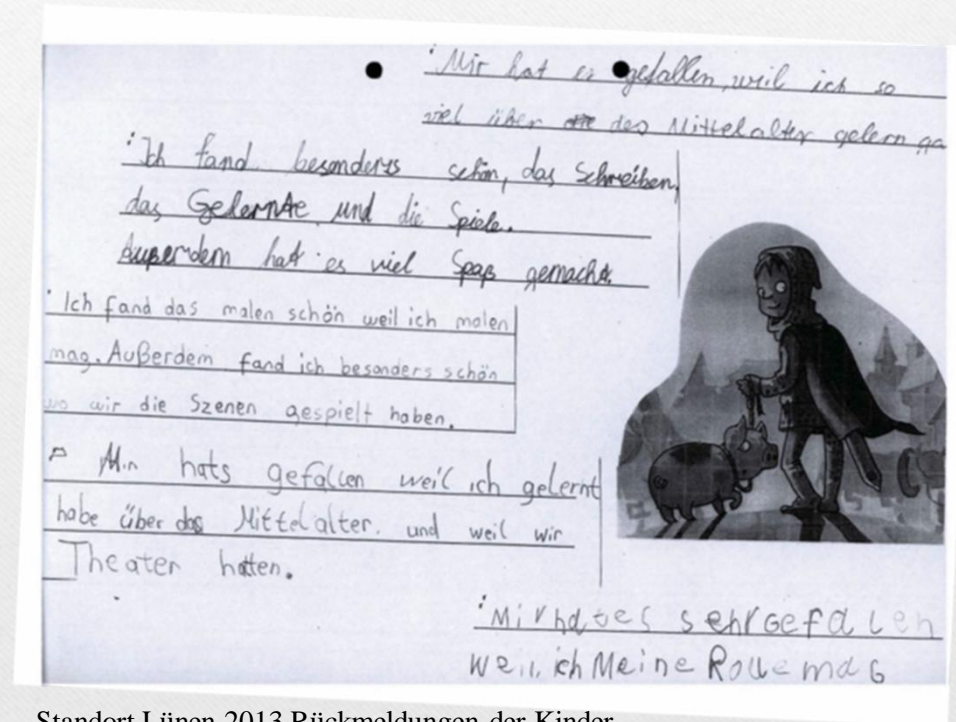 Mir hat es gefallen, weil ich so
viel über das Mittelalter gelern ga
Ich fand besonders schön, das Schreiben,
das Gelernte und die Spiele.
Außerdem hat es viel Spaß gemacht.
Ich fand das malen schön weil ich malen
mag. Außerdem fand ich besonders schön
wo wir die Szenen gespielt haben.
Mir hats gefallen weil ich gelernt
habe über das Mittelalter. und weil wir
Theater hatten.
Mir hat es sehr Gefalen
weil ich Meine Rolle mag
Standort Lünen 2013 Rückmeldungen der Kinder